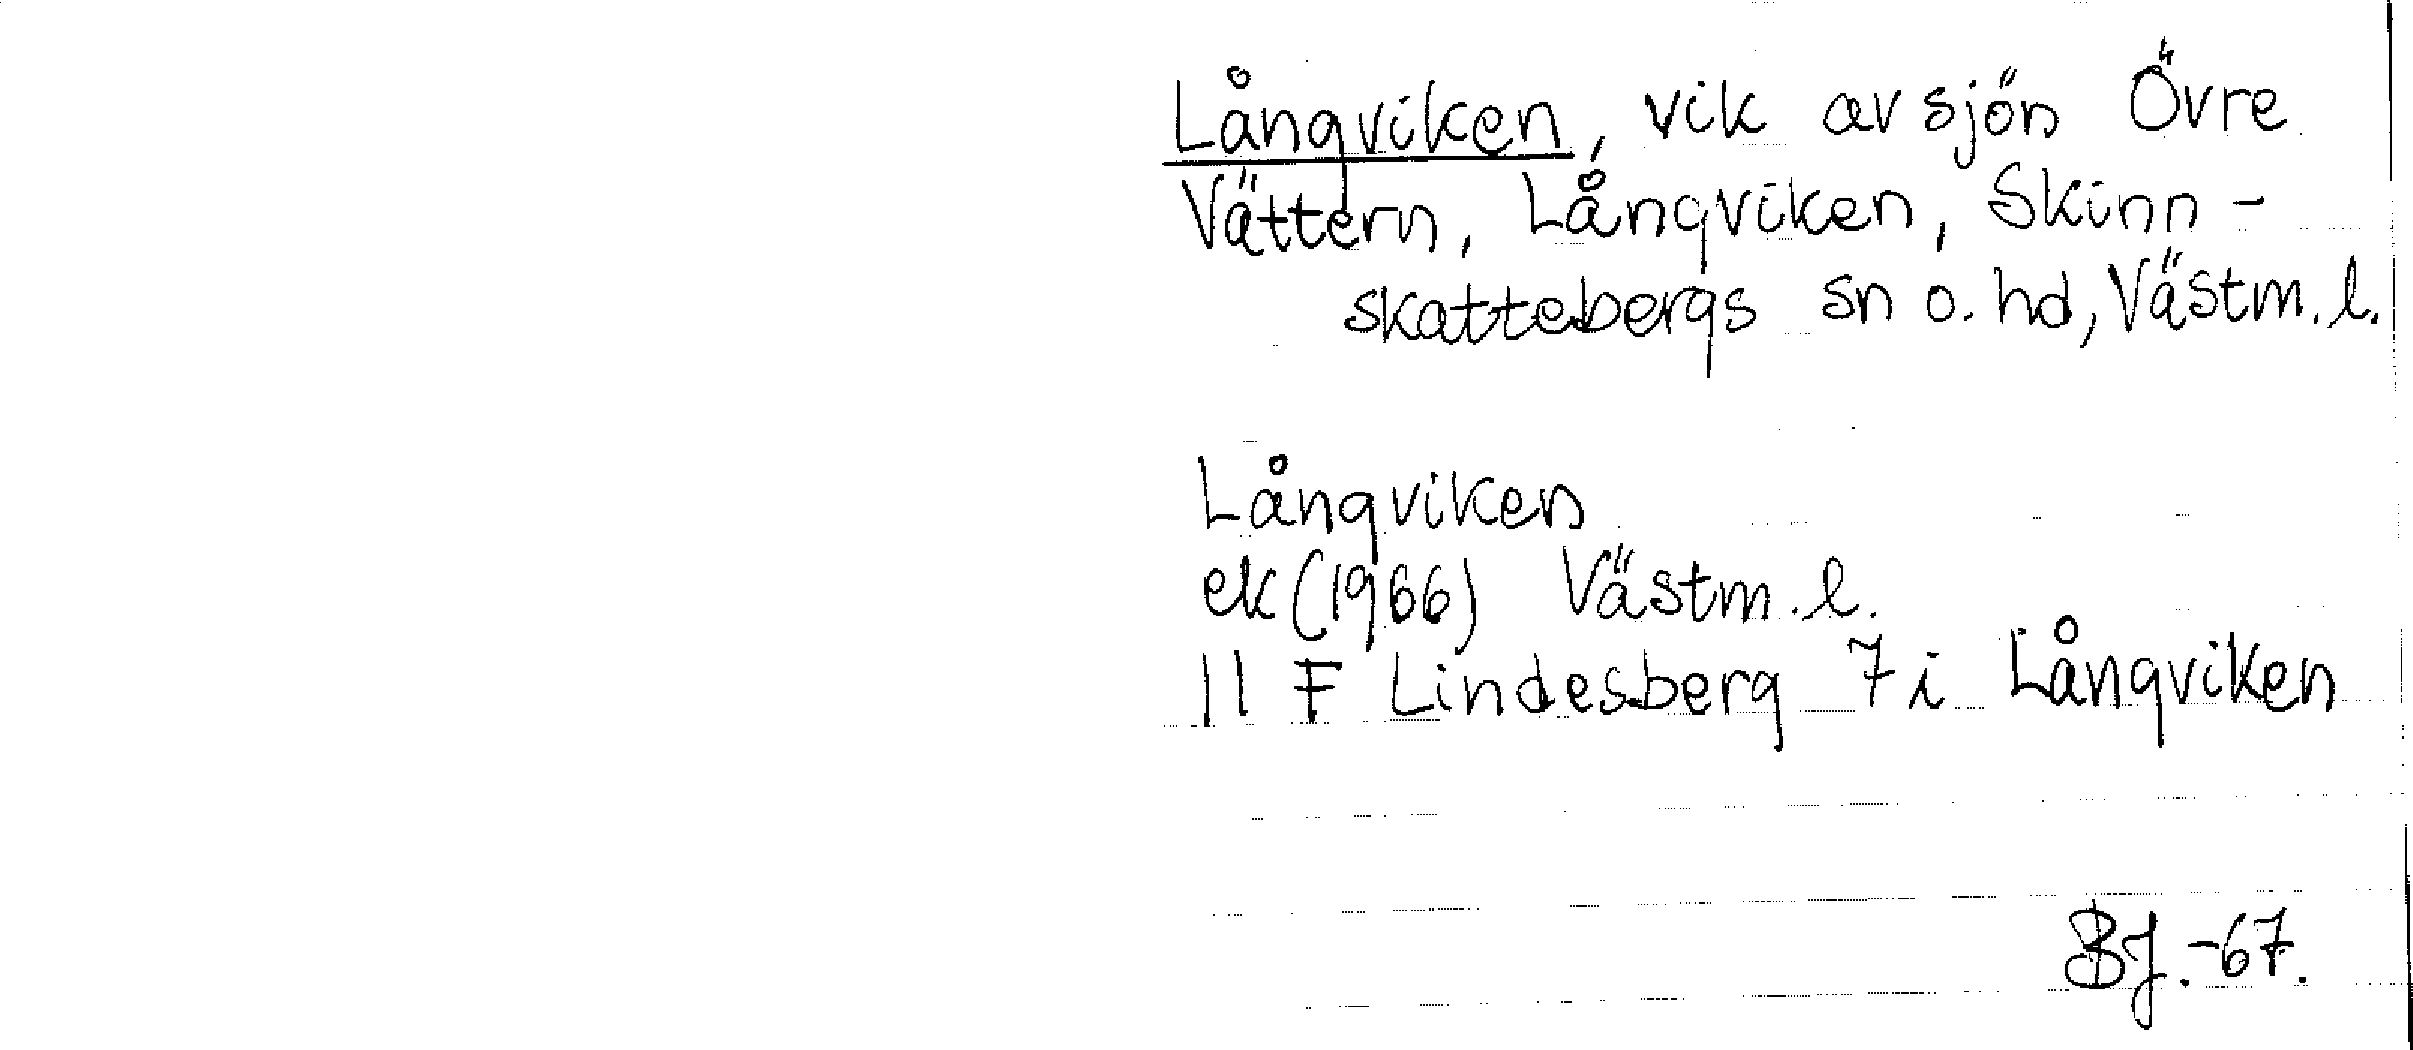 Långviken, vik av sjön Övre
Vättern, Långviken, Skinn-
skattebergs sn o. hd, Västm. l.
Långviken
ek (1966) Västm. l.
11 F Lindesberg 7 i Långviken
BJ. -67.